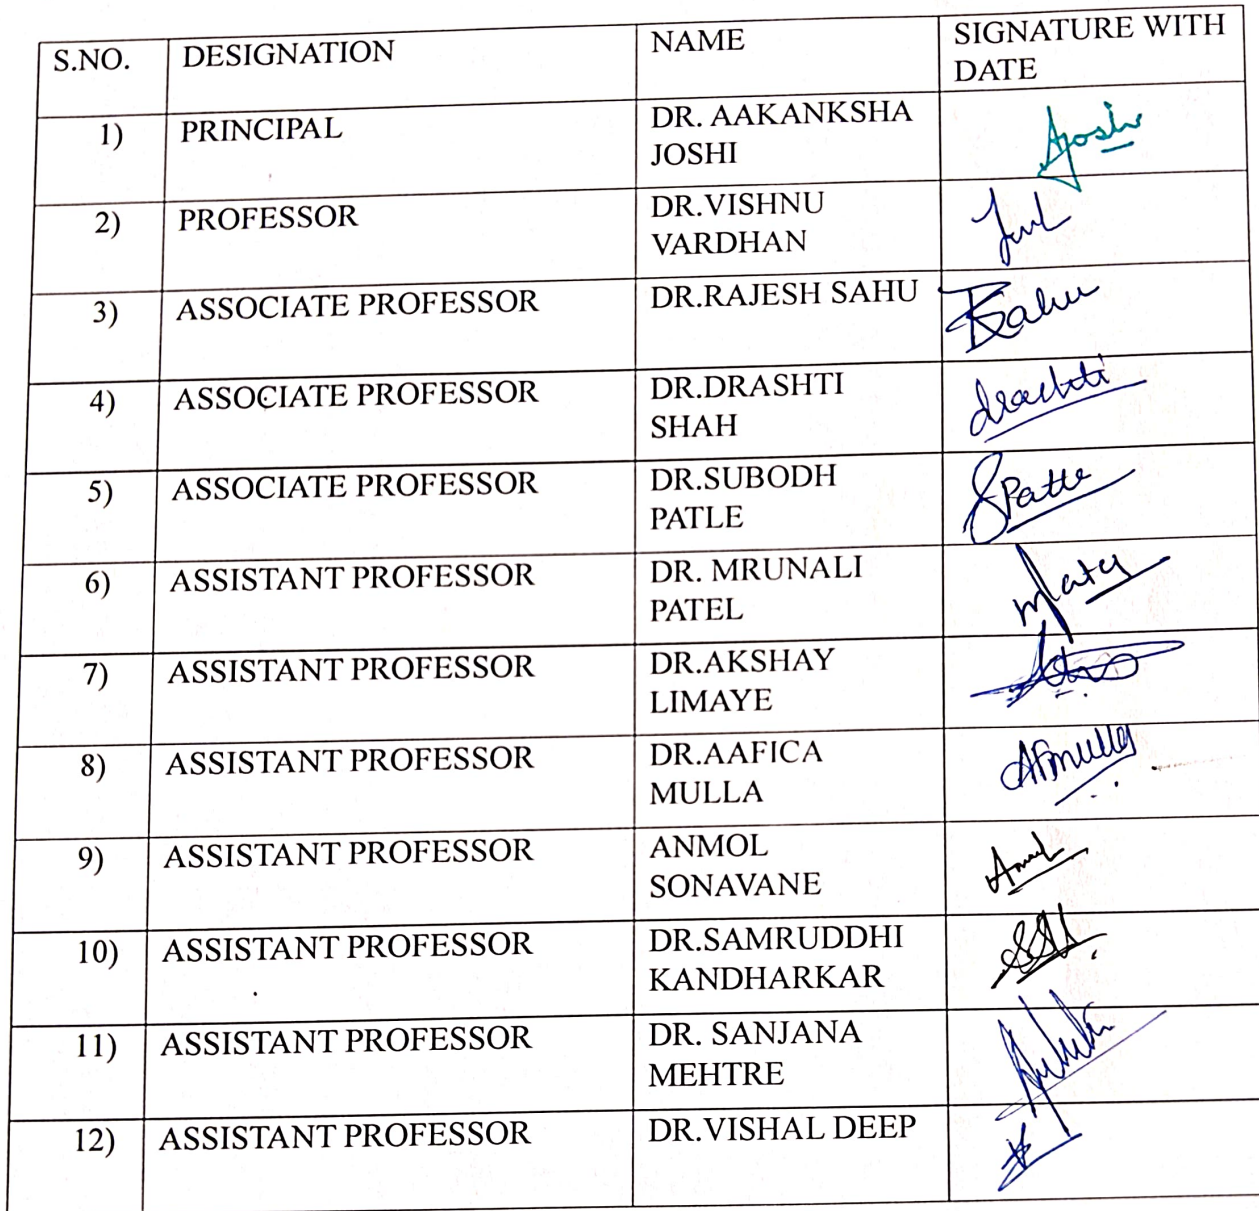 S.NO. DESIGNATION NAME SIGNATURE WITH
DATE
1) PRINCIPAL DR. AAKANKSHA
JOSHI
Ajoshi
2) PROFESSOR DR.VISHNU
VARDHAN
3) ASSOCIATE PROFESSOR DR.RAJESH SAHU
RSahu
4) ASSOCIATE PROFESSOR DR.DRASHTI
SHAH
drashti
5) ASSOCIATE PROFESSOR DR.SUBODH
PATLE
SPatle
6) ASSISTANT PROFESSOR DR. MRUNALI
PATEL
7) ASSISTANT PROFESSOR DR.AKSHAY
LIMAYE
8) ASSISTANT PROFESSOR DR.AAFICA
MULLA
AFmulla
9) ASSISTANT PROFESSOR ANMOL
SONAVANE
10) ASSISTANT PROFESSOR DR.SAMRUDDHI
KANDHARKAR
11) ASSISTANT PROFESSOR DR. SANJANA
MEHTRE
12) ASSISTANT PROFESSOR DR.VISHAL DEEP